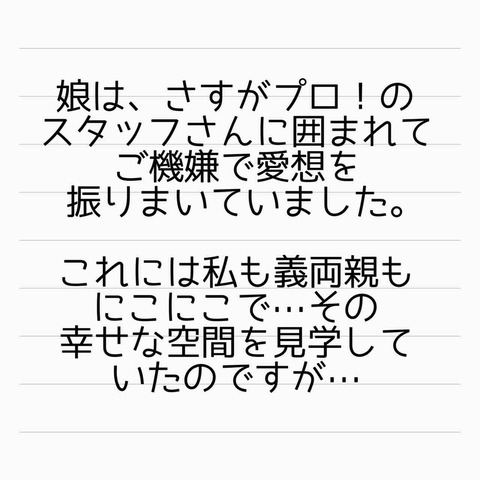 娘は、さすがプロ！の
スタッフさんに囲まれて
ご機嫌で愛想を
振りまいていました。
これには私も義両親も
にこにこで…その
幸せな空間を見学して
いたのですが…